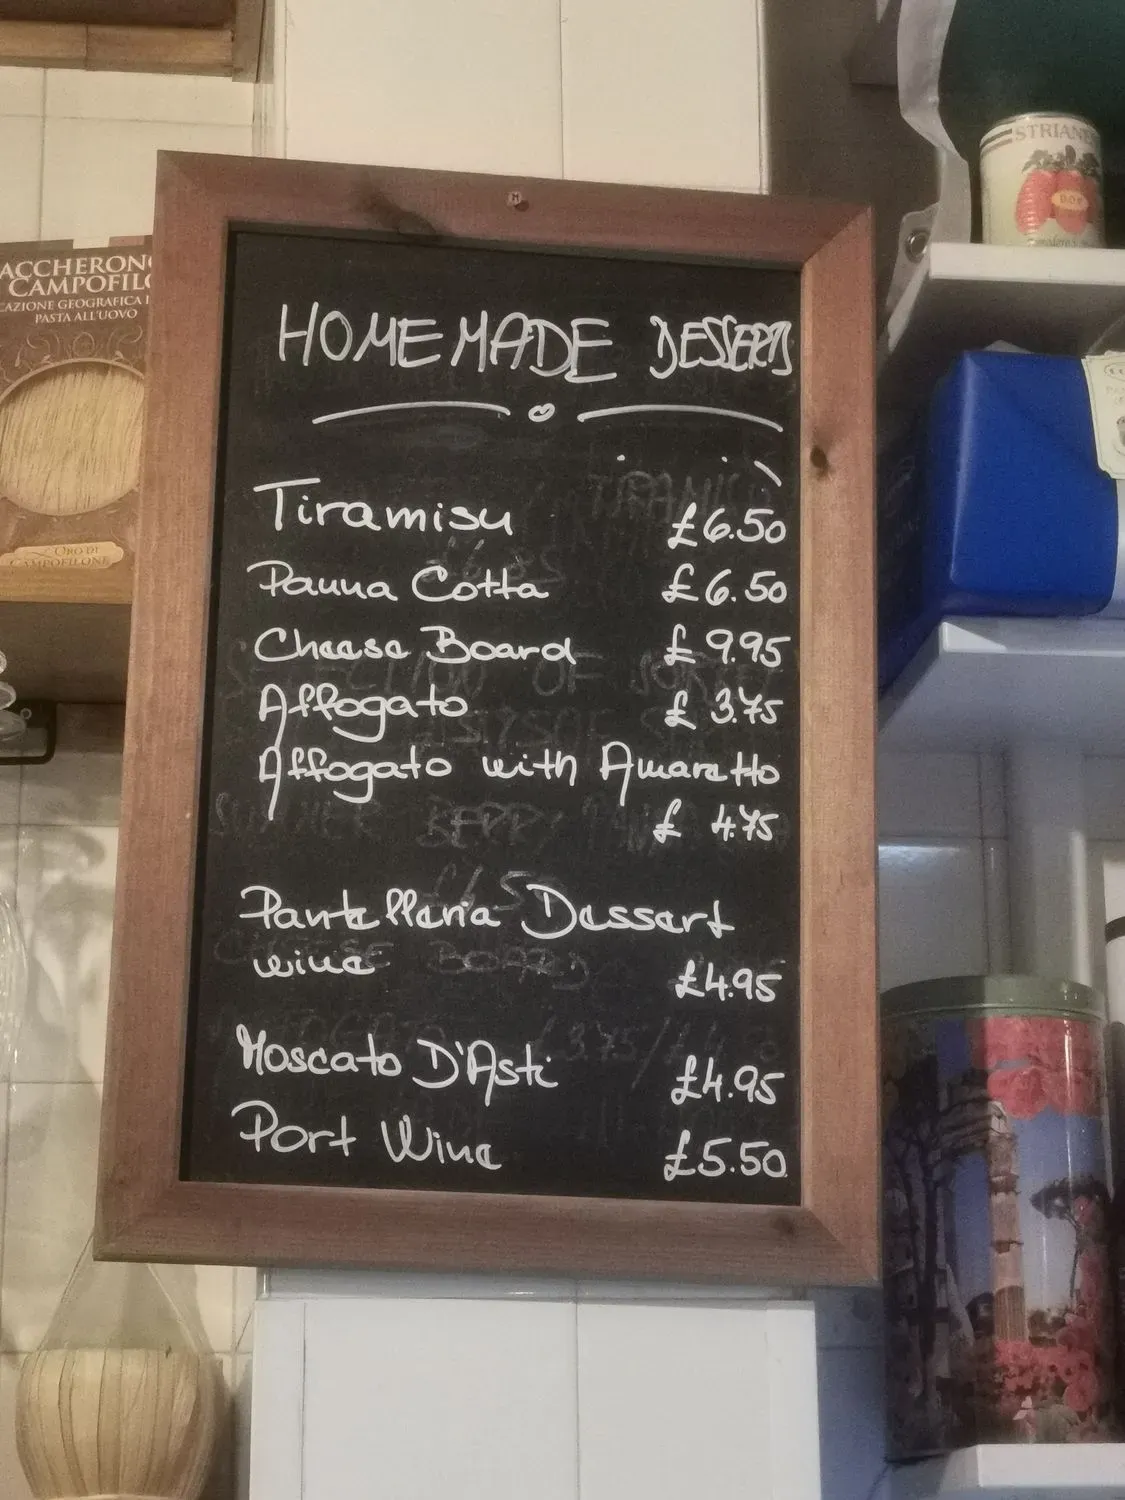 HOMEMADE DESSERTS
Tiramisu £6.50
Panna Cotta £6.50
Cheese Board £9.95
Affogato £3.75
Affogato with Amaretto
£4.75
Pantelleria Dessert
wine £4.95
Moscato D'Asti £4.95
Port Wine £5.50
ACCHERON
CAMPOFILO
CAZIONE GEOGRAFICA
PASTA ALL'UOVO
ORO DI
CAMPOFILONE
STRIAN
DOP